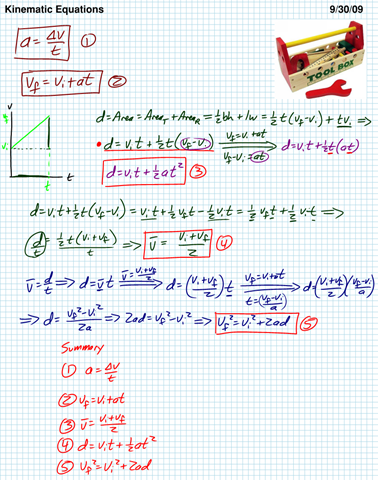 Kinematic Equations 9/30/09
a = Δv/t ①
TOOL BOX
v_f = v_i + at ②
v
v_f
v_i
t
d = Area = Area_T + Area_R = ½bh + lw = ½t(v_f - v_i) + tv_i ⇒
• d = v_i t + ½t(v_f - v_i) v_f = v_i + at v_f - v_i = at → d = v_i t + ½t(at)
d = v_i t + ½at² ③
d = v_i t + ½t(v_f - v_i) = v_i t + ½v_f t - ½v_i t = ½v_f t + ½v_i t ⇒
d/t = ½t(v_i + v_f)/t ⇒ v̄ = (v_i + v_f)/2 ④
v̄ = d/t ⇒ d = v̄t v̄ = (v_i + v_f)/2 ⇒ d = ((v_i + v_f)/2)t v_f = v_i + at t = (v_f - v_i)/a → d = ((v_i + v_f)/2)((v_f - v_i)/a)
⇒ d = (v_f² - v_i²)/2a ⇒ 2ad = v_f² - v_i² ⇒ v_f² = v_i² + 2ad ⑤
Summary
① a = Δv/t
② v_f = v_i + at
③ v̄ = (v_i + v_f)/2
④ d = v_i t + ½at²
⑤ v_f² = v_i² + 2ad